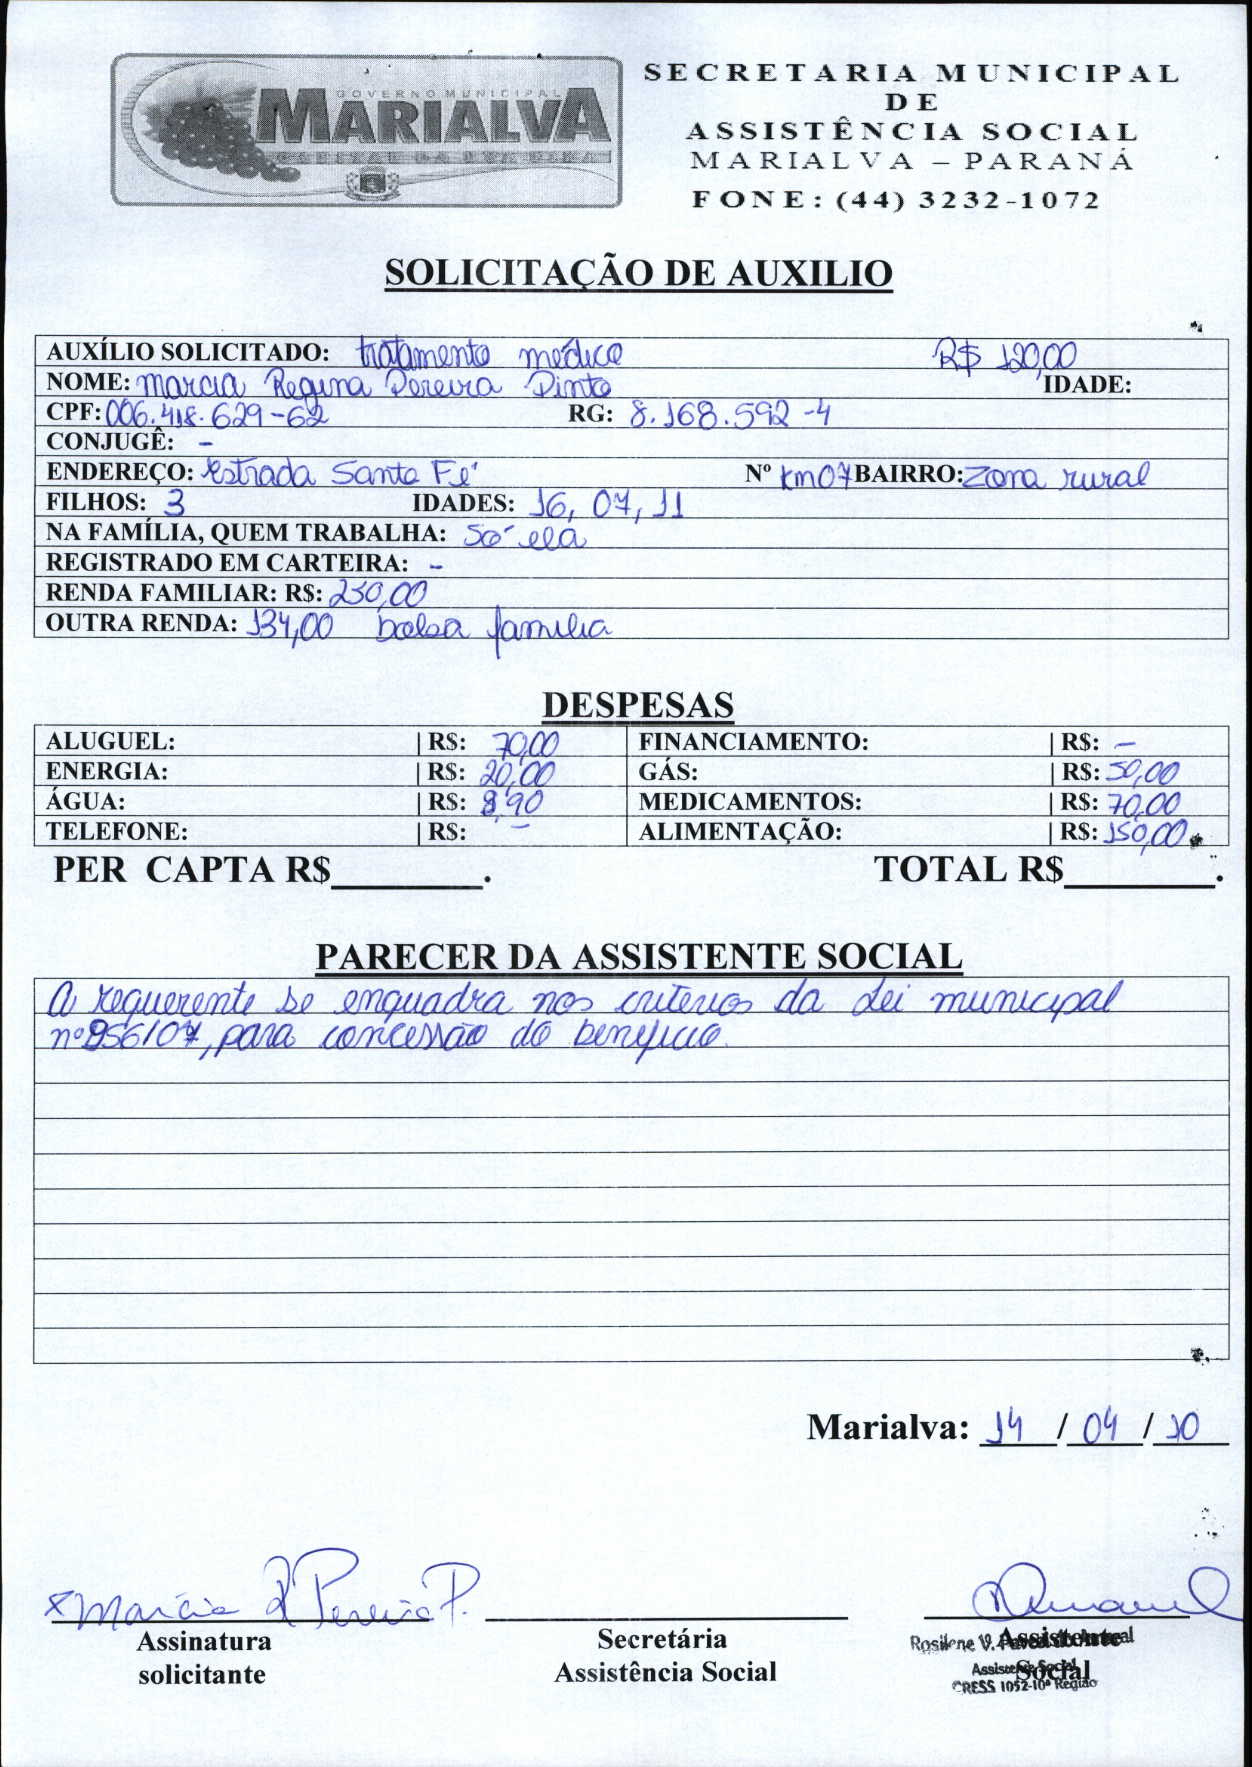 GOVERNO MUNICIPAL
MARIALVA
CAPITAL DA UVA FINA
SECRETARIA MUNICIPAL
DE
ASSISTÊNCIA SOCIAL
MARIALVA – PARANÁ
FONE: (44) 3232-1072
SOLICITAÇÃO DE AUXILIO
AUXÍLIO SOLICITADO: tratamento médico R$ 120,00
NOME: Marcia Regina Pereira Pinto IDADE:
CPF: 006.418.629-62 RG: 8.168.592-4
CONJUGÊ: -
ENDEREÇO: Estrada Santa Fé Nº km07 BAIRRO: Zona rural
FILHOS: 3 IDADES: 16, 07, 11
NA FAMÍLIA, QUEM TRABALHA: Só ela
REGISTRADO EM CARTEIRA: -
RENDA FAMILIAR: R$: 230,00
OUTRA RENDA: 134,00 bolsa família
DESPESAS
ALUGUEL: | R$: 70,00 FINANCIAMENTO: | R$: -
ENERGIA: | R$: 20,00 GÁS: | R$: 50,00
ÁGUA: | R$: 8,90 MEDICAMENTOS: | R$: 70,00
TELEFONE: | R$: - ALIMENTAÇÃO: | R$: 150,00
PER CAPTA R$________. TOTAL R$________.
PARECER DA ASSISTENTE SOCIAL
A requerente se enquadra nos critérios da Lei municipal
nº 956/07, para concessão do benefício.
Marialva: 14 / 04 / 10
x Marcia R Pereira P.
Assinatura
solicitante
Secretária
Assistência Social
Assistente
Social
Rosilene V.
Assistente Social
CRESS 1052-10ª Região